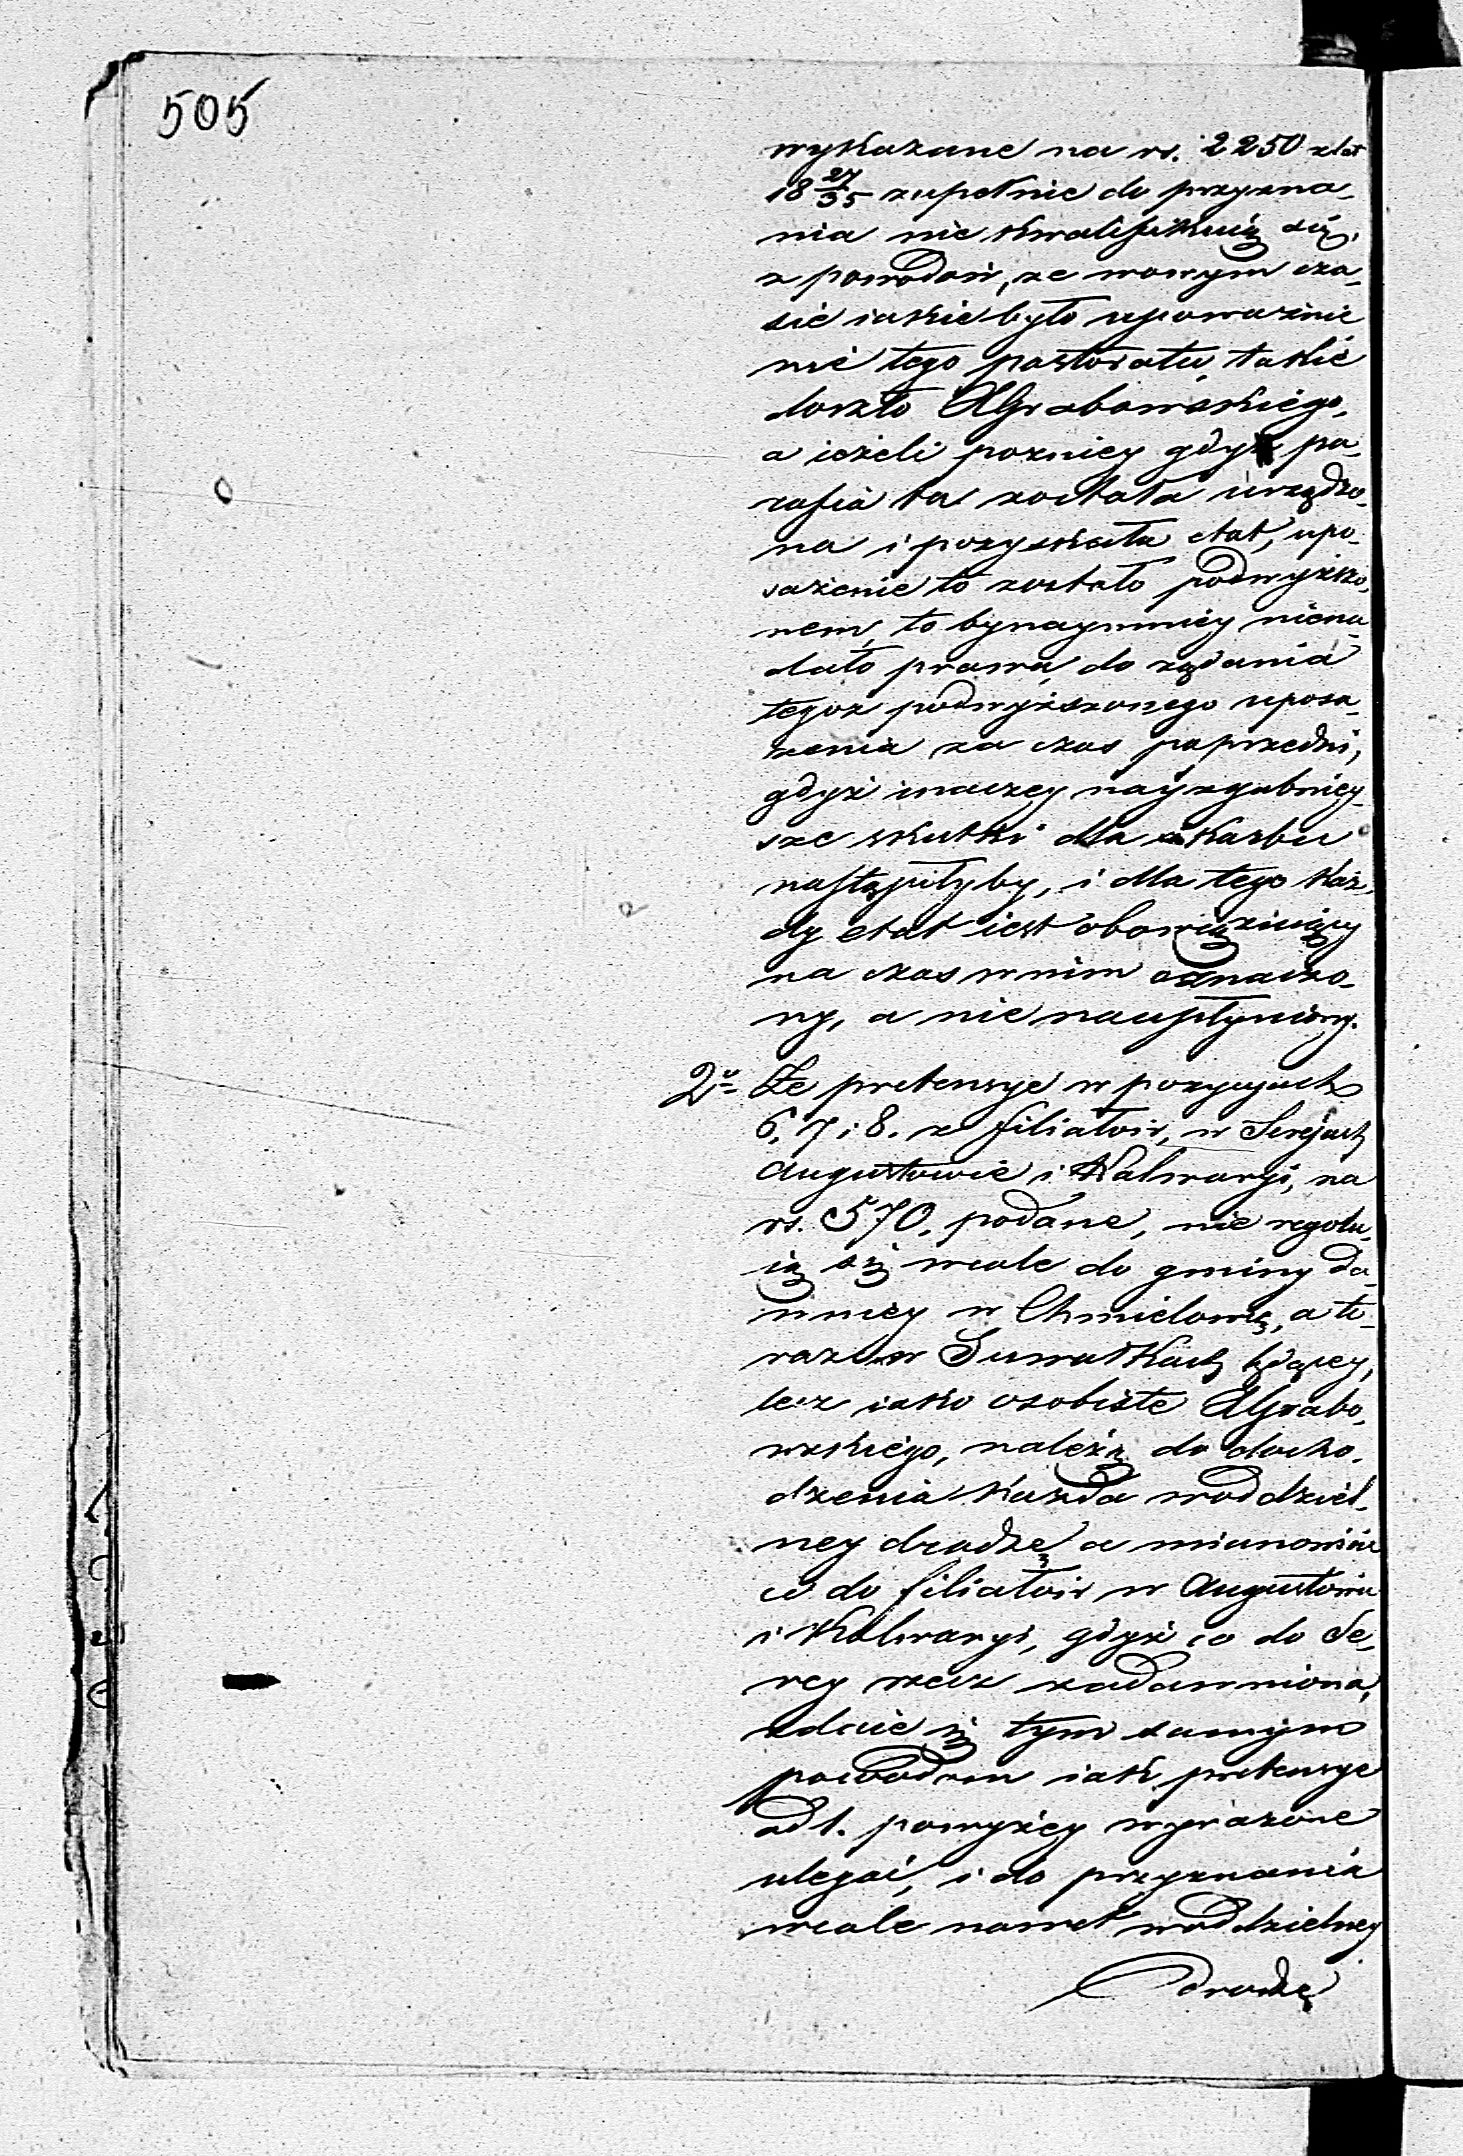 505
wykazane na rs. 2250 z lat
18 27/35 zupełnie do przyzna-
nia nie kwalifikuią się,
z powodów, że wowym cza-
sie iakie było upoważnie
nie tego pastoratu, takie
doszło XGrabowskiego,
a ieżeli pozniey gdy pa-
rafia ta została urządzo-
na i pozyskała etat, upo-
sażenie to zostało podwyższo-
nem, to bynaymniey niena-
dało prawa do żądania
tegoż podwyższonego uposa-
żenia za czas poprzedni,
gdyż inaczey nayzgubniey-
sze skutki dla skarbu
nastąpiłyby, i dla tego każ-
dy etat iest obowiązuiący
na czas w nim oznaczo-
ny, a nie naupłyniony.
2o Że pretensye w pozycyach
6, 7 i 8. z filiałów, w Serejach
Augustowie i Kalwaryi, na
rs. 570, podane, nie regulu-
ią się wcale do gminy da-
wniey w Chmielowce, a te-
raz w Suwałkach będącey,
lecz iako osobiste XGrabo-
wskiego, należą do docho-
dzenia każda w oddziel-
ney drodze a mianowicie
co do filiałów w Augustowie
i Kalwaryi, gdyż co do Se-
rey rzecz zadawniona,
zdaie się tym samym
powodom iak pretensye
ad 1. powyżey wyrażone
ulegać, i do przyznania
wcale nawet w oddzielney
drodze